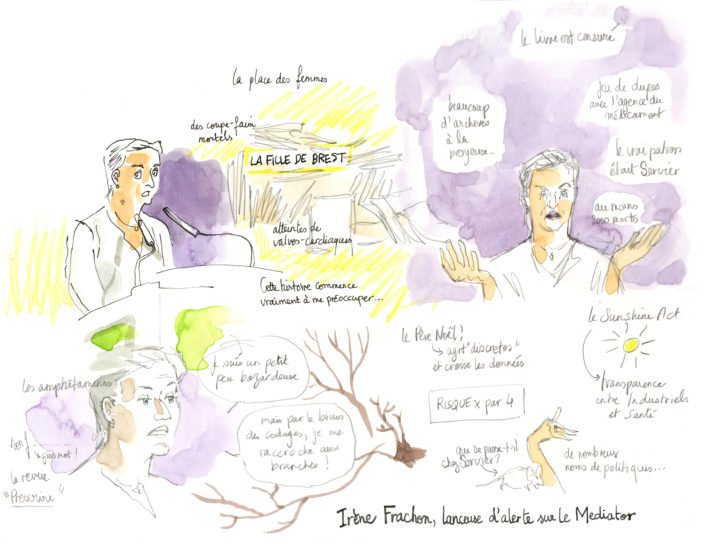 le livre est censuré
la place des femmes
beaucoup
d'archives
à la
broyeuse...
jeu de dupes
avec l'agence du
médicament
des coupe-faim
mortels
LA FILLE DE BREST
le vrai patron
était Servier
au moins
2000 morts
atteintes de
valves-cardiaques
Cette histoire commence
vraiment à me préoccuper...
je suis un petit
peu bazardeuse
le Père Noël !
agit "discretos"
et croise les données
le Sunshine Act
transparence
entre Industriels
et Santé
Les amphétamines
mais par le biais
des codages, je me
raccroche aux
branches !
RISQUE x par 4
gros mot !
la revue
"Prescrire"
que se passe-t-il
chez Servier ?
de nombreux
noms de politiques...
Irène Frachon, lanceuse d'alerte sur le Mediator